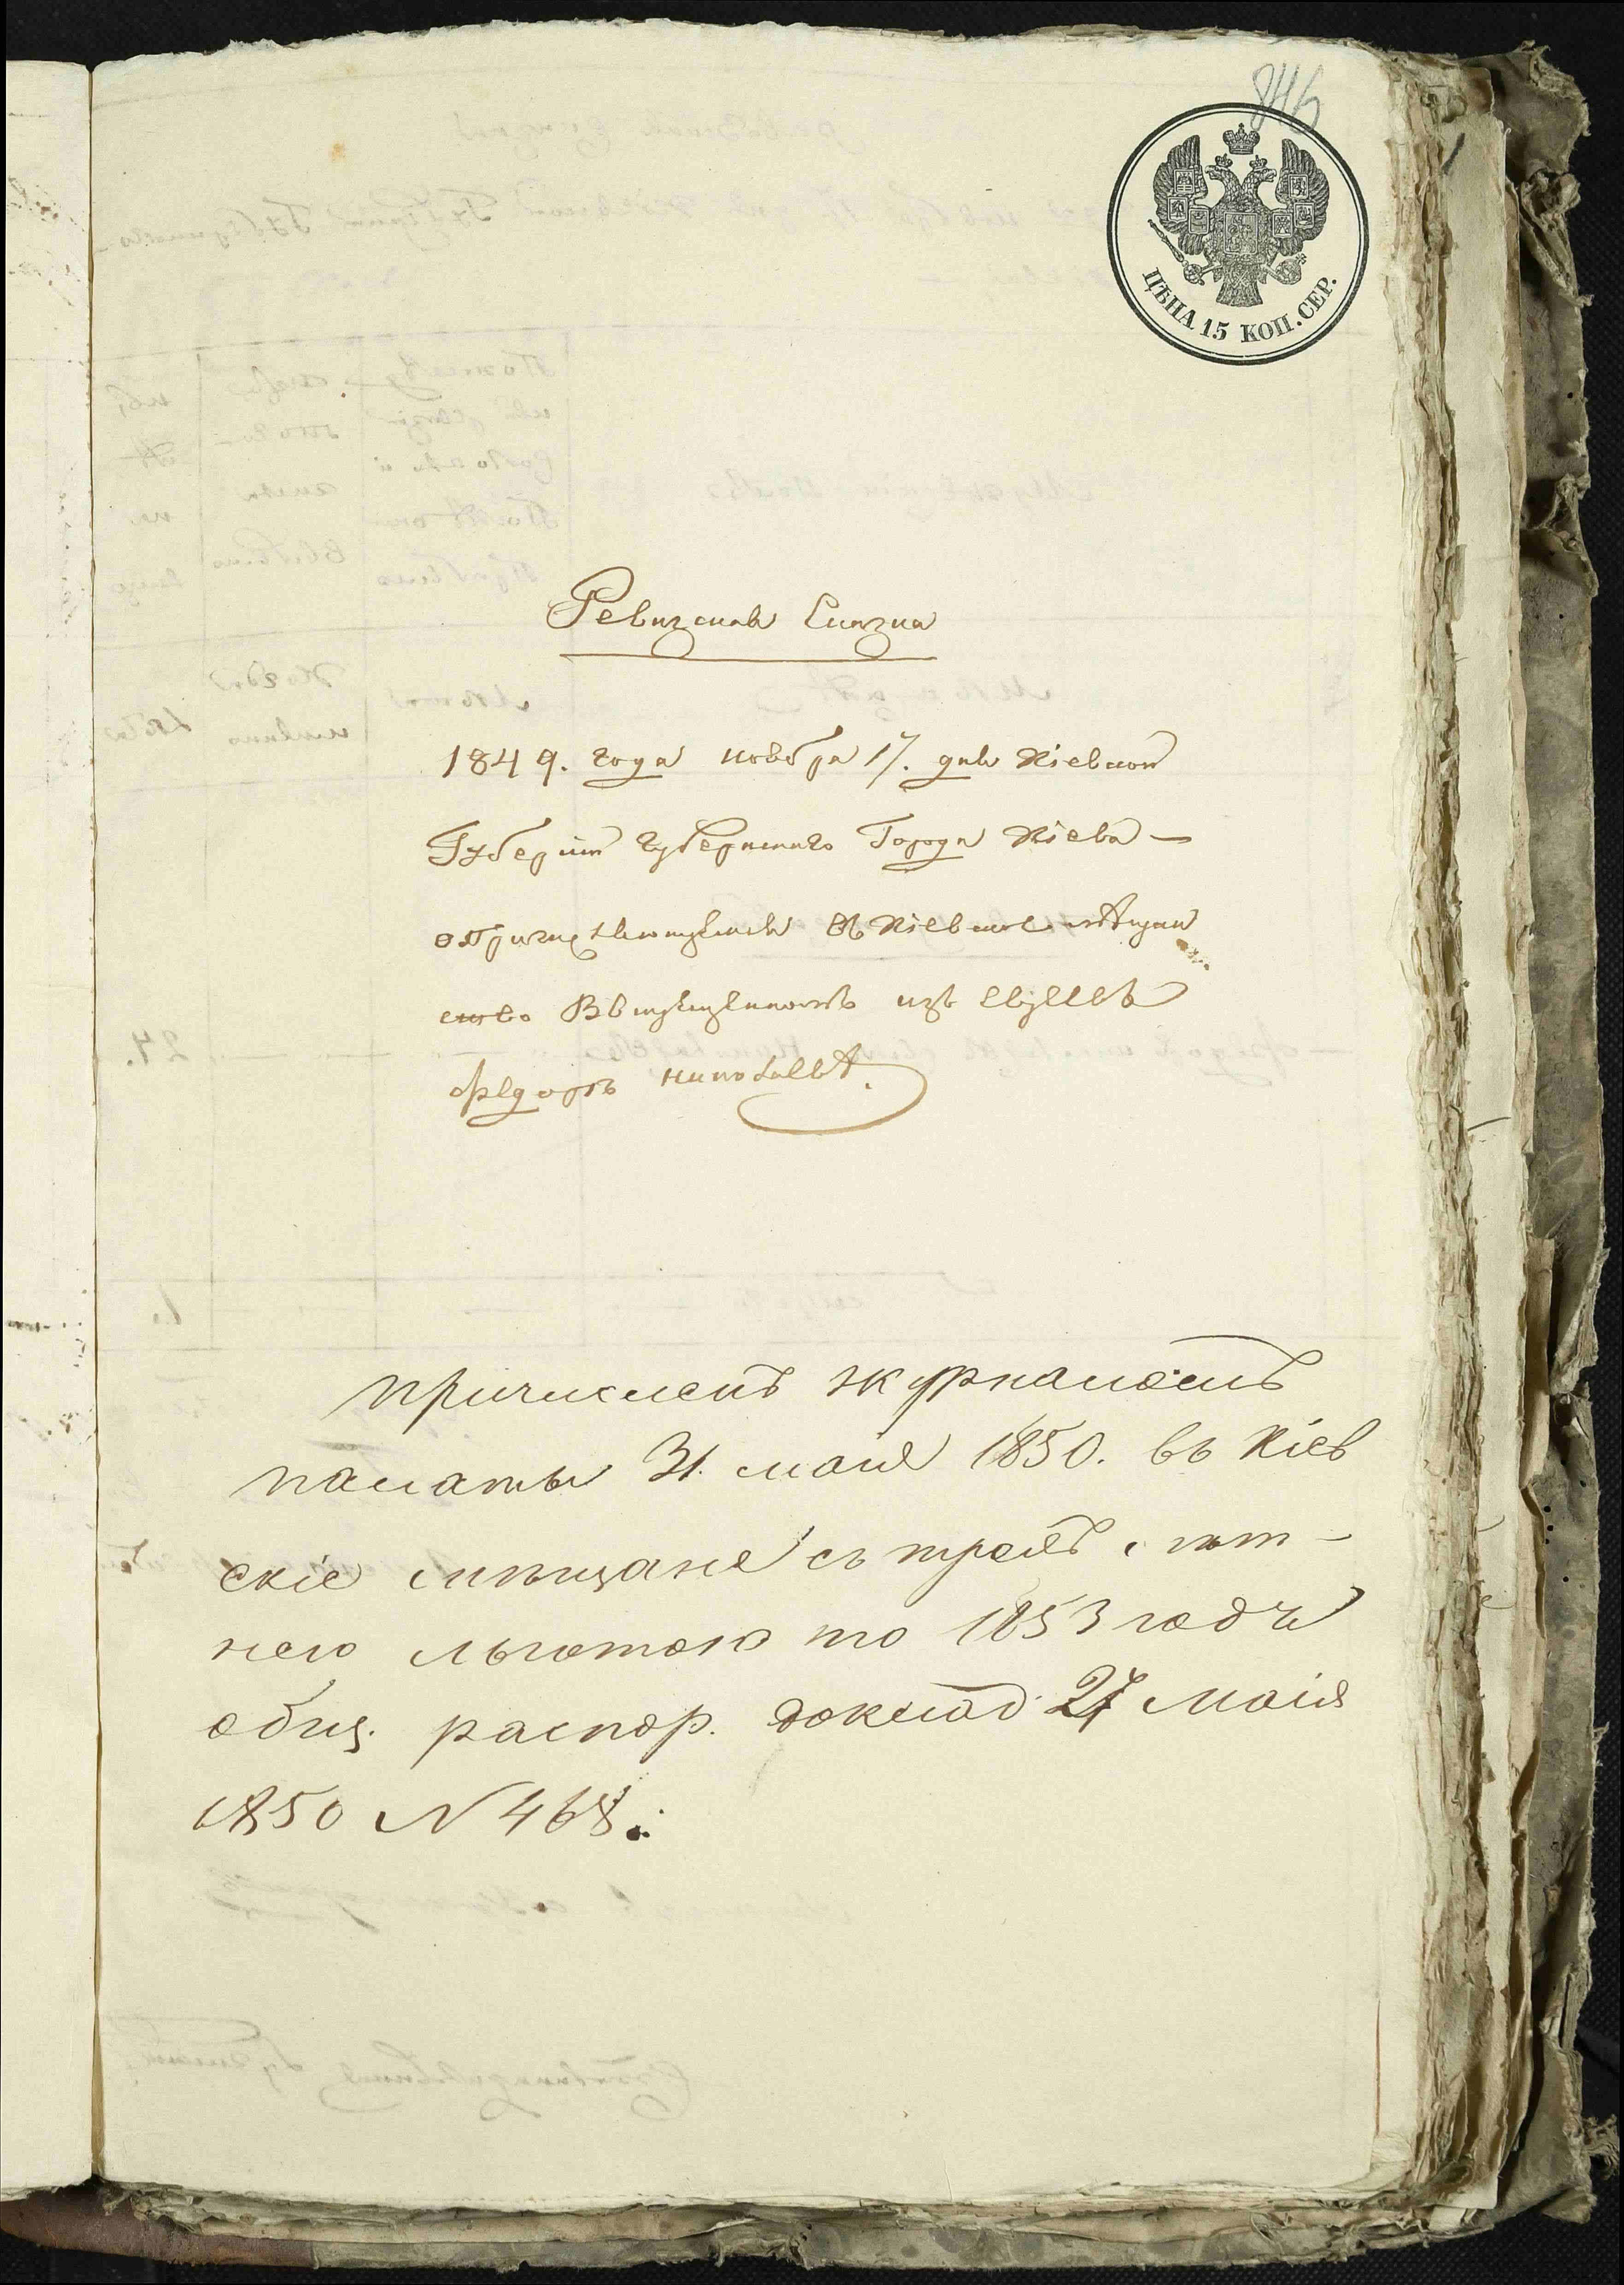 846
ЦѢНА 15 КОП. СЕР.
Ревизская Сказка
1849. года ноября 17. дня Кіевской
Губерніи губернскаго Города Кіева —
о Причисляющемся въ Кіевское мѣщан
ство изъ евреевъ
Федоръ Николаевѣ.
Причисленъ журналомъ
палаты 31. маія 1850. въ Кіев
скіе мѣщане съ трехъ лѣт—
нею льготою по 1853 годъ
общ. распор. доклад 27 Маія
1850 N 468.